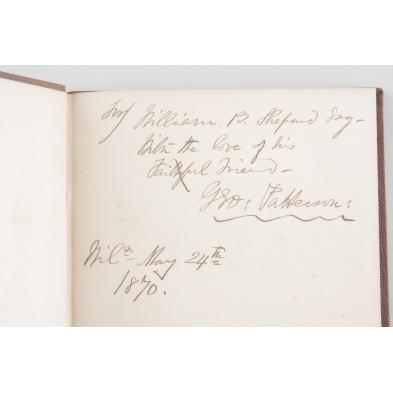 For William B. Shepard Esq-
With the love of his
Faithful Friend-
Geo: Patterson:
Wilⁿ May 24th
1870.